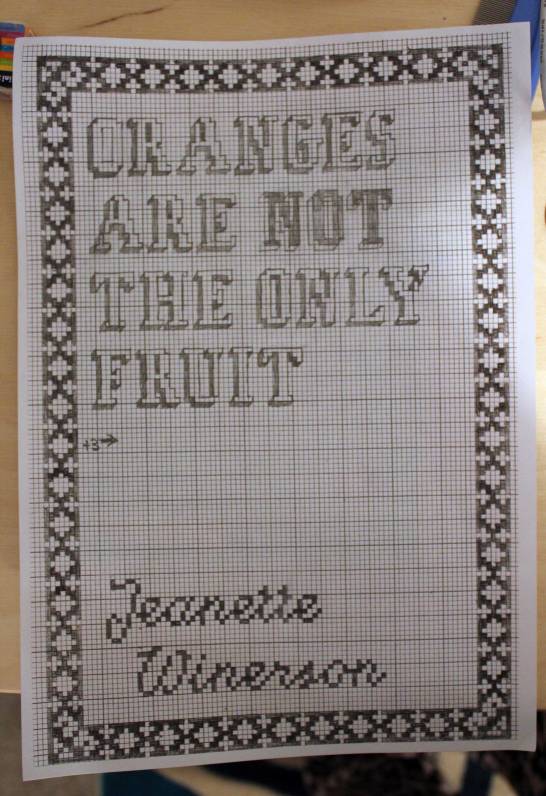 ORANGES
ARE NOT
THE ONLY
FRUIT
+3→
Jeanette
Winerson